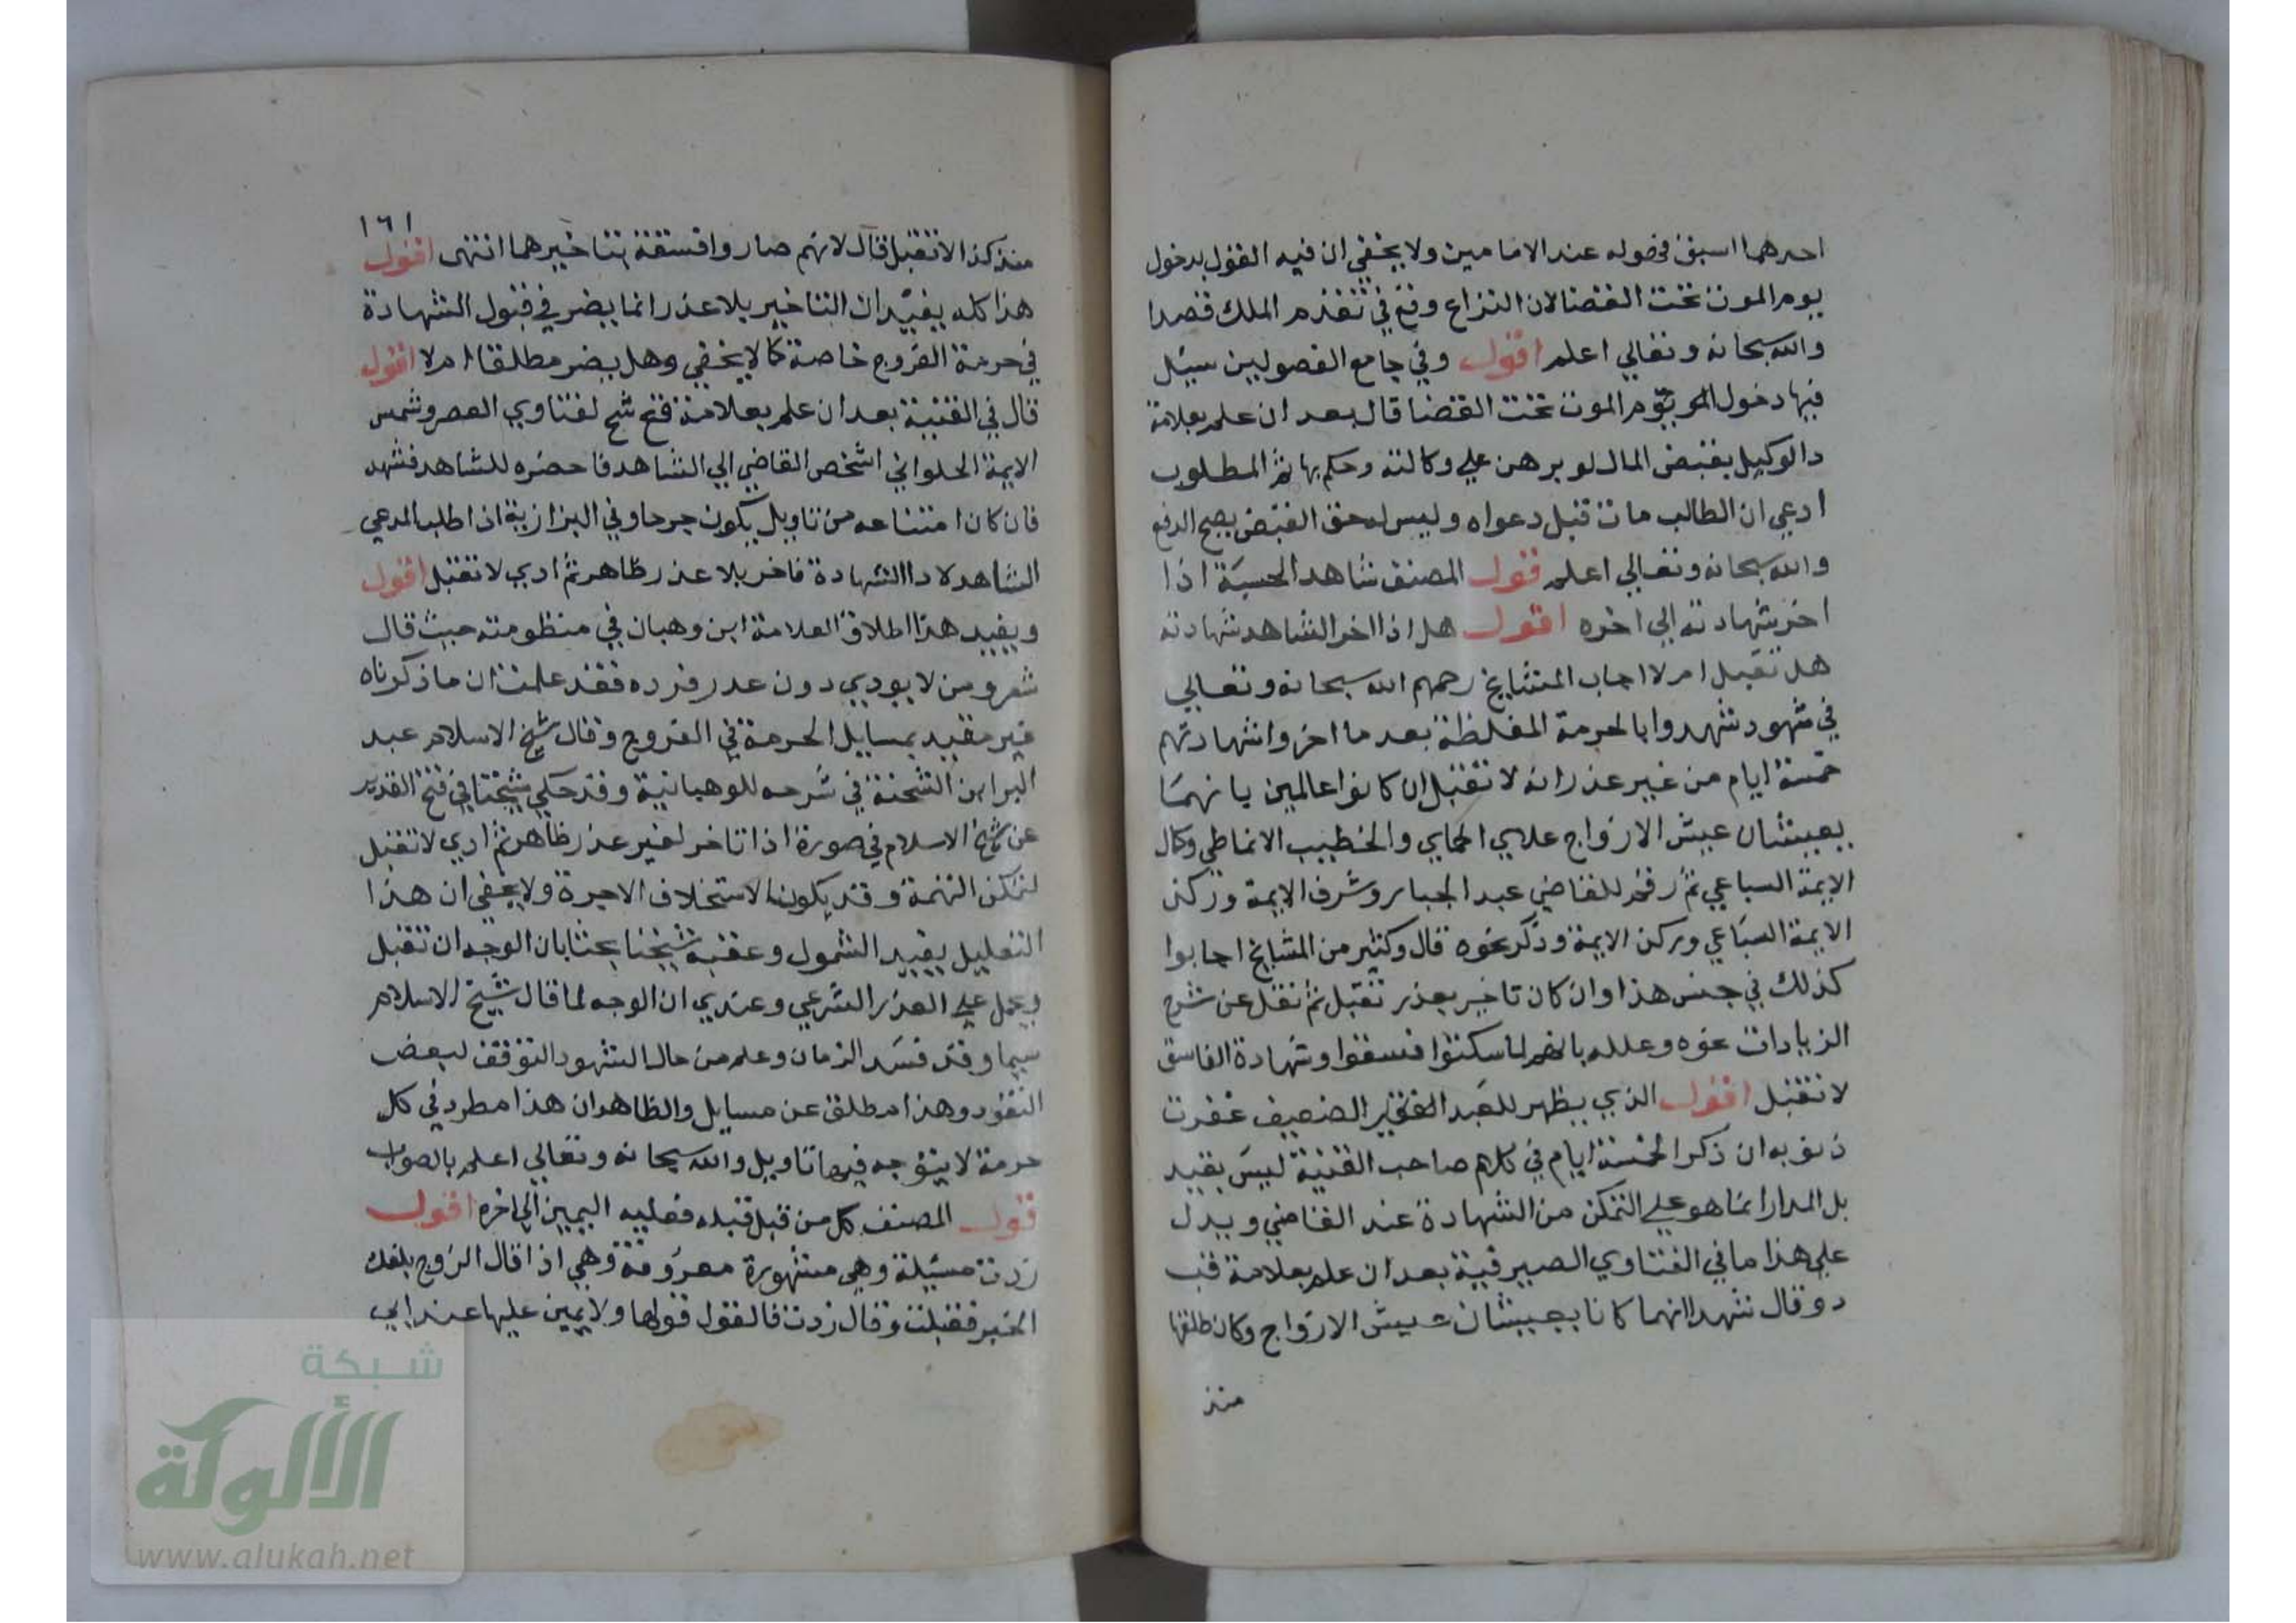 احدهما اسبق فوصوله عند الامامين ولا يخفي ان فيه القول بدخول
يوم الموت تحت القضا لان النزاع وقع في تقدم الملك قصدا
والله سبحانه وتعالي اعلم اقول وفي جامع الفصولين سيئل
فيها دخول يوم الموت تحت القضا قال بعد ان علم بعلامة
د الوكيل بقبض المال لو برهن علي وكالته وحكم بها ثم المطلوب
ادعي ان الطالب مات قبل دعواه وليس له حق القبض يصح الدفع
والله سبحانه وتعالي اعلم قول المصنف شاهد الحسبة اذا
اخر شهادته الي اخره اقول هل اذا اخر الشاهد شهادته
هل تقبل ام لا اجاب المشايخ رحمهم الله سبحانه وتعالي
في شهود شهدوا بالحرمة المغلظة بعد ما اخروا شهادتهم
خمسة ايام من غير عذر انه لا تقبل ان كانوا عالمين بانهما
يعيشان عيش الازواج علاي الحمامي والخطيب الانماطي وكال
الايمة السباعي ثم رقم للقاضي عبد الجبار وشرف الايمة وركن
الايمة السباعي وركن الايمة وذكر نحوه قال وكثير من المشايخ اجابوا
كذلك في جنس هذا وان كان تاخير بعذر تقبل ثم نقل عن شرح
الزيادات نحوه وعلله بانهم لما سكتوا فسقوا وشهادة الفاسق
لا تقبل اقول الذي يظهر للعبد الفقير الضعيف غفرت
ذنوبه ان ذكر الخمسة ايام في كلام صاحب القنية ليس بقيد
بل المدار انما هو علي التمكن من الشهادة عند القاضي ويدل
علي هذا ما في الفتاوي الصيرفية بعد ان علم بعلامة قب
د و قال شهدا انهما كانا يعيشان عيش الازواج وكان طلقها
منذ
١٦١
منذ كذا لا تقبل قال لانهم صاروا فسقة بتاخيرهما انتهى اقول
هذا كله يفيد ان التاخير بلا عذر انما يضر في قبول الشهادة
في حرمة الفروج خاصة كما لا يخفي وهل يضر مطلقا ام لا اقول
قال في القنية بعد ان علم بعلامة فتح شح لفتاوي العصر وشمس
الايمة الحلواني اشخص القاضي الي الشاهد فاحضره للشاهد فشهد
فان كان امتناعه من تاويل يكون جرحا وفي البزازية اذا طلب المدعي
الشاهد لادا الشهادة فاخر بلا عذر ظاهر ثم ادي لا تقبل اقول
ويفيد هذا اطلاق العلامة ابن وهبان في منظومته حيث قال
شعر ومن لا يودي دون عذر فرده فقد علمت ان ما ذكرناه
غير مقيد بمسايل الحرمة في الفروج وقال شيخ الاسلام عبد
البر ابن الشحنة في شرحه للوهبانية وقد حكي شيخنا في فتح القدير
عن شيخ الاسلام في صورة اذا تاخر لغير عذر ظاهر ثم ادي لا تقبل
لتمكن التهمة وقد يكون لاستخلاف الاجرة ولا يخفي ان هذا
التعليل يفيد الشمول وعقبه شيخنا بحثا بان الوجه ان تقبل
ويحمل علي العذر الشرعي وعندي ان الوجه لما قال شيخ الاسلام
سيما وقد فسد الزمان وعلم من حال الشهود التوقف لبعض
النقود وهذا مطلق عن مسايل والظاهر ان هذا مطرد في كل
حرمة لا يتوجه فيها تاويل والله سبحانه وتعالي اعلم بالصواب
قول المصنف كل من قبل قبله فعليه اليمين الي اخره اقول
زدت مسئلة وهي مشهورة معروفة وهي اذا قال الزوج بلغك
الخبر فقبلت وقال زدت فالقول قولها ولا يمين عليها عند ابي
شبكة
الألوكة
www.alukah.net